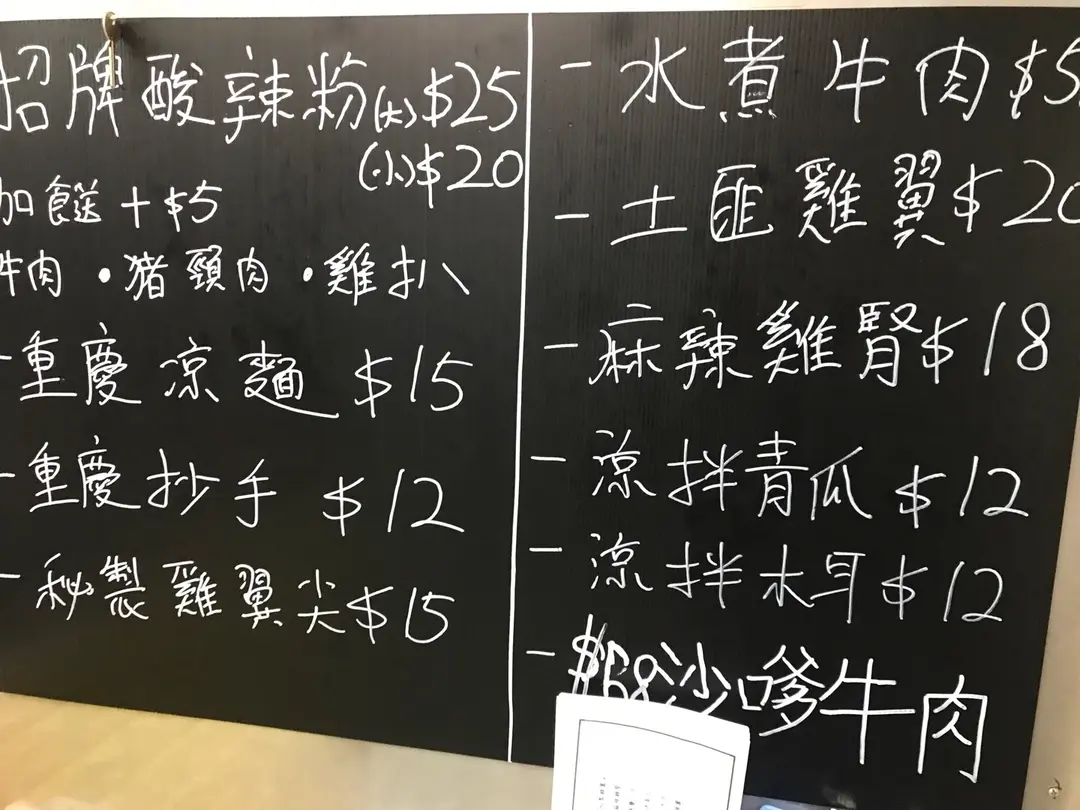 招牌酸辣粉(大)$25
(小)$20
加餸+$5
牛肉・猪頸肉・雞扒
-重慶凉麵 $15
-重慶抄手 $12
-秘製雞翼尖$15
-水煮牛肉$5
-土匪雞翼$20
-麻辣雞腎$18
-涼拌青瓜 $12
-涼拌木耳 $12
-$68沙嗲牛肉